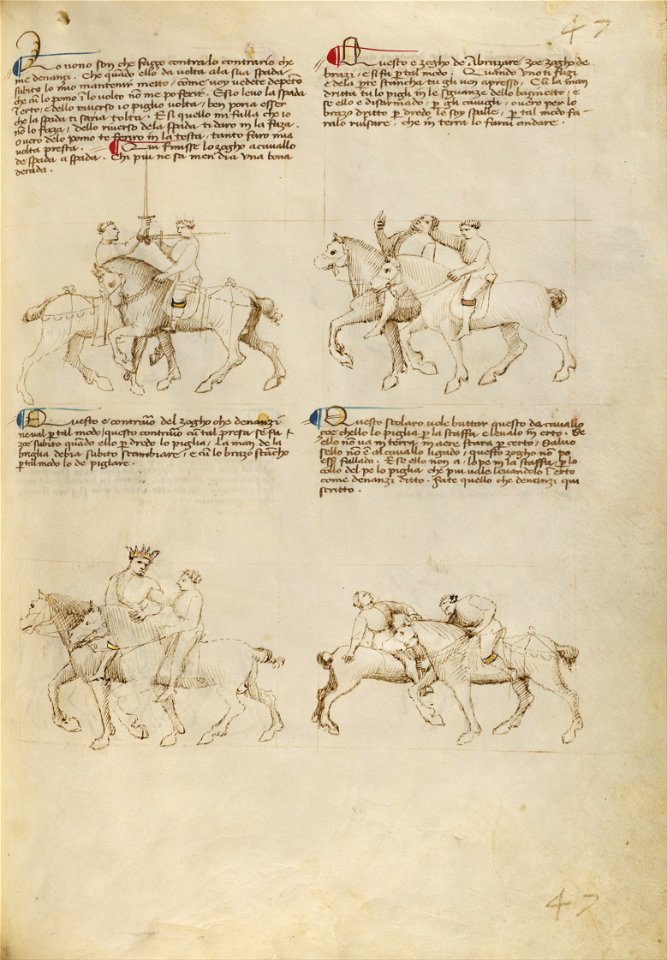 47
Lo nono son che faggo contra lo contrario che
me denanzi. Che quãdo ello da volta ala sua spada
subito lo mio mantenir metto / come voy vedete depento
che cũ lo pomo ĩ lo volto nõ me po ferir. E si o levo la spada
ĩ erto e dello riverso io piglio volta / ben poria esser
che la spada ti saria tolta. E si quello mi falla che io
no lo faza / dello riverso dela spada ti daro in la faza.
overo delo pomo te feriro in la testa, tanto faro mia
volta presta. Qui finisse lo zogho a cavallo
de spada a spada. Chi piu ne sa men dia una bona
derada.
Questo e zogho de Abrizare zoe zogho de
brazi, e si fa p tal modo. Quando uno ti fuzi
e dela pte stancha tu gli ven apresso. Cũ la man
dritta tu lo pigli in le sguanze dello bacineto, e
se ello e disarmado, p gli cavigli, overo per lo
brazo dritto p dredo le soy spalle, p tal modo fa-
ralo riversare, che in terra lo farai andare.
Questo e contrario del zogho che denanzi
ne val p tal modo / questo contrario cũ tal presa se fa.
zoe subito quãdo ello p dredo lo piglia / la man de la
briglia debia subito scambiare, e cũ lo brazo stãcho
p tal modo lo de pigliare.
Questo scolaro vole buttar questo da cavallo
zoe chello lo piglia p la staffa e levalo in erto. Se
ello nõ va in terra in aere stara p certo, Salvo
sello nõ e al cavallo ligado / questo zogho nõ po
esser fallado. E se ello non a lo pe in la staffa, p lo
collo del pe lo piglia che piu vale levandolo ĩ erto
come denanzi ditto. Fate quello che denanzi qui
scritto.
47